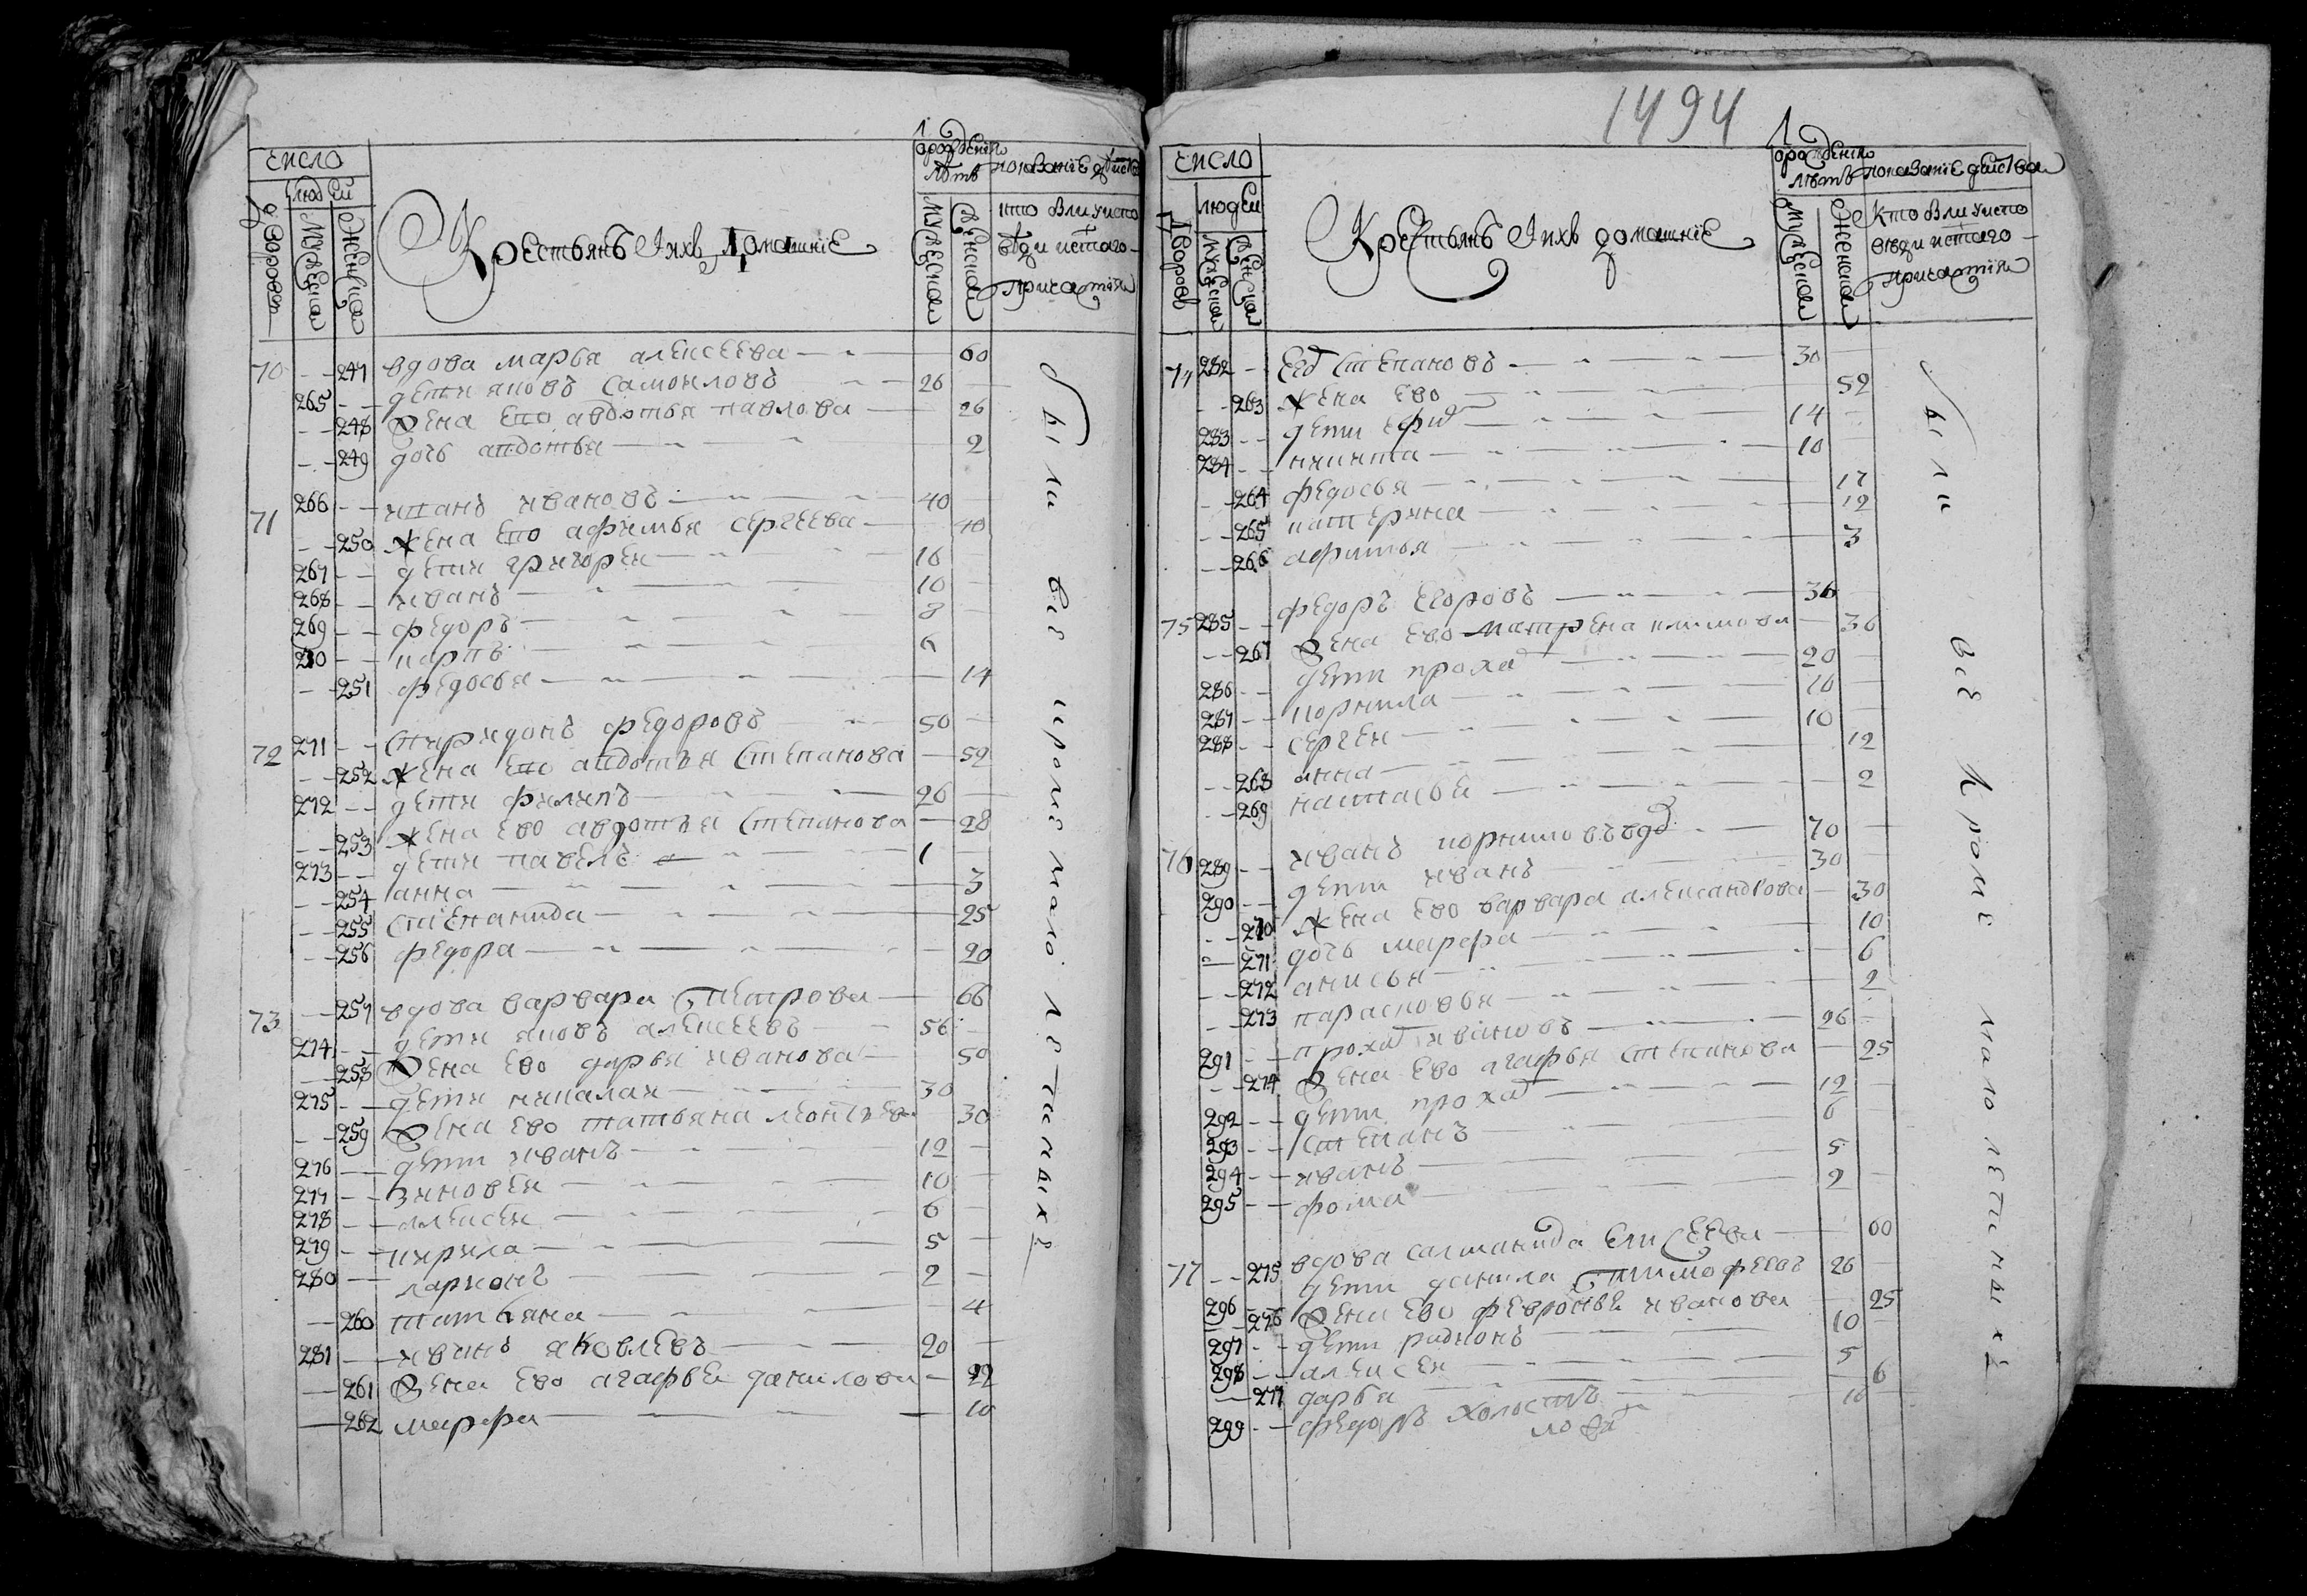 число
людей
дворовъ
мужеска
женска
Крестьянѣ і ихъ домашніе
от рожденія
лѣтъ
мужеска
женска
показаніе действа
кто были у исповеди и с̃таго причастия
70 -- 247 вдова марья алексеева 60
265 -- дети яковъ самоиловъ 26
-- 248 жена ево авдотья павлова 26
-- 249 дочь авдотья 2
71 266 -- иванъ ивановъ 40
-- 250 жена ево афимья сергеева 40
267 -- дети григореи 16
268 -- иванъ 10
269 -- федоръ 8
270 -- карпъ 6
-- 251 федосья 14
72 271 -- спиридонъ федоровъ 50
-- 252 жена ево авдотья степанова 52
272 -- дети филипъ 26
-- 253 жена ево авдотья степанова 28
273 -- дети павелъ 1
-- 254 анна 3
-- 255 степанида 25
-- 256 федора 20
73 -- 257 вдова варвара петрова 66
274 -- дети яковъ алексеевъ 56
-- 258 жена ево дарья иванова 50
275 -- дети николаи 30
-- 259 жена ево татьяна 30
276 -- дети иванъ 12
277 -- зиновеи 10
278 -- алексеи 6
279 -- кирила 5
280 -- ларионъ 2
-- 260 татьяна 4
281 -- иванъ яковлевъ 20
-- 261 жена ево агафья данилова 22
-- 262 марфа 10
были все кроме малолетныхъ
1494
число
людеи
дворовъ
мужеска
женска
Крестьянѣ і ихъ домашніе
от рожденія
лѣтъ
мужеска
женска
показаніе действа
кто были у исповеди и с̃таго причастия
74 282 -- его степановъ 30
-- 263 жена ево 52
283 -- дети ефи 14
284 -- никита 10
-- 264 федосья 17
-- 265 катерина 12
-- 266 афимья 3
75 285 -- федоръ егоровъ 36
-- 267 жена ево матрена климова 36
286 -- дети проха 20
287 -- корнила 16
288 -- сергеи 10
-- 268 анна 12
-- 269 настасья 2
76 289 -- иванъ корниловъ вдо 70
290 -- дети иванъ 30
-- 270 жена ево варвара александрова 30
-- 271 дочь марфа 10
-- 272 анисья 6
-- 273 парасковья 2
291 -- проха ивановъ 26
-- 274 жена ево агафья степанова 25
292 -- дети проха 12
293 -- степанъ 6
294 -- иванъ 5
295 -- фома 2
77 -- 275 вдова салманида елисеева 60
296 -- дети данила тимофеевъ 26
-- 276 жена ево февронья иванова 25
297 -- дети радионъ 10
298 -- алексеи 5
-- 277 дарья 6
299 -- федоръ холостъ 10
были все кроме малолетныхъ